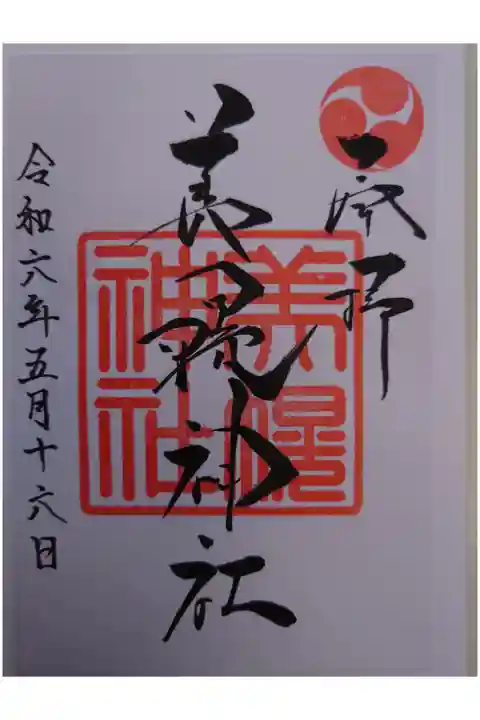 奉拝
美幌神社
令和六年五月十六日
美幌
神社